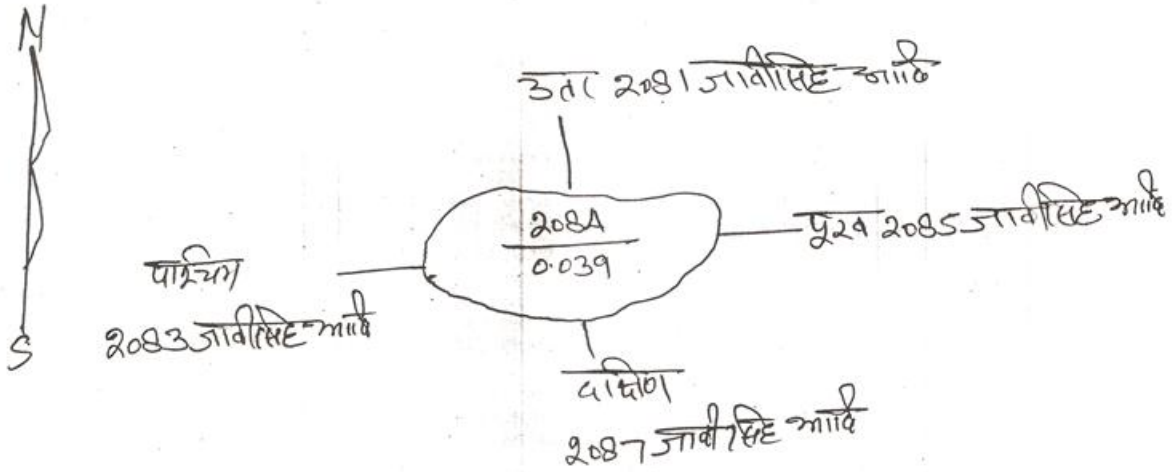 N
उत्तर 2081 जावीसिंह आदि
2084
0.039
पूरव 2085 जावीसिंह आदि
पश्चिम
2083 जावीसिंह आदि
S
दक्षिण
2087 जावीसिंह आदि